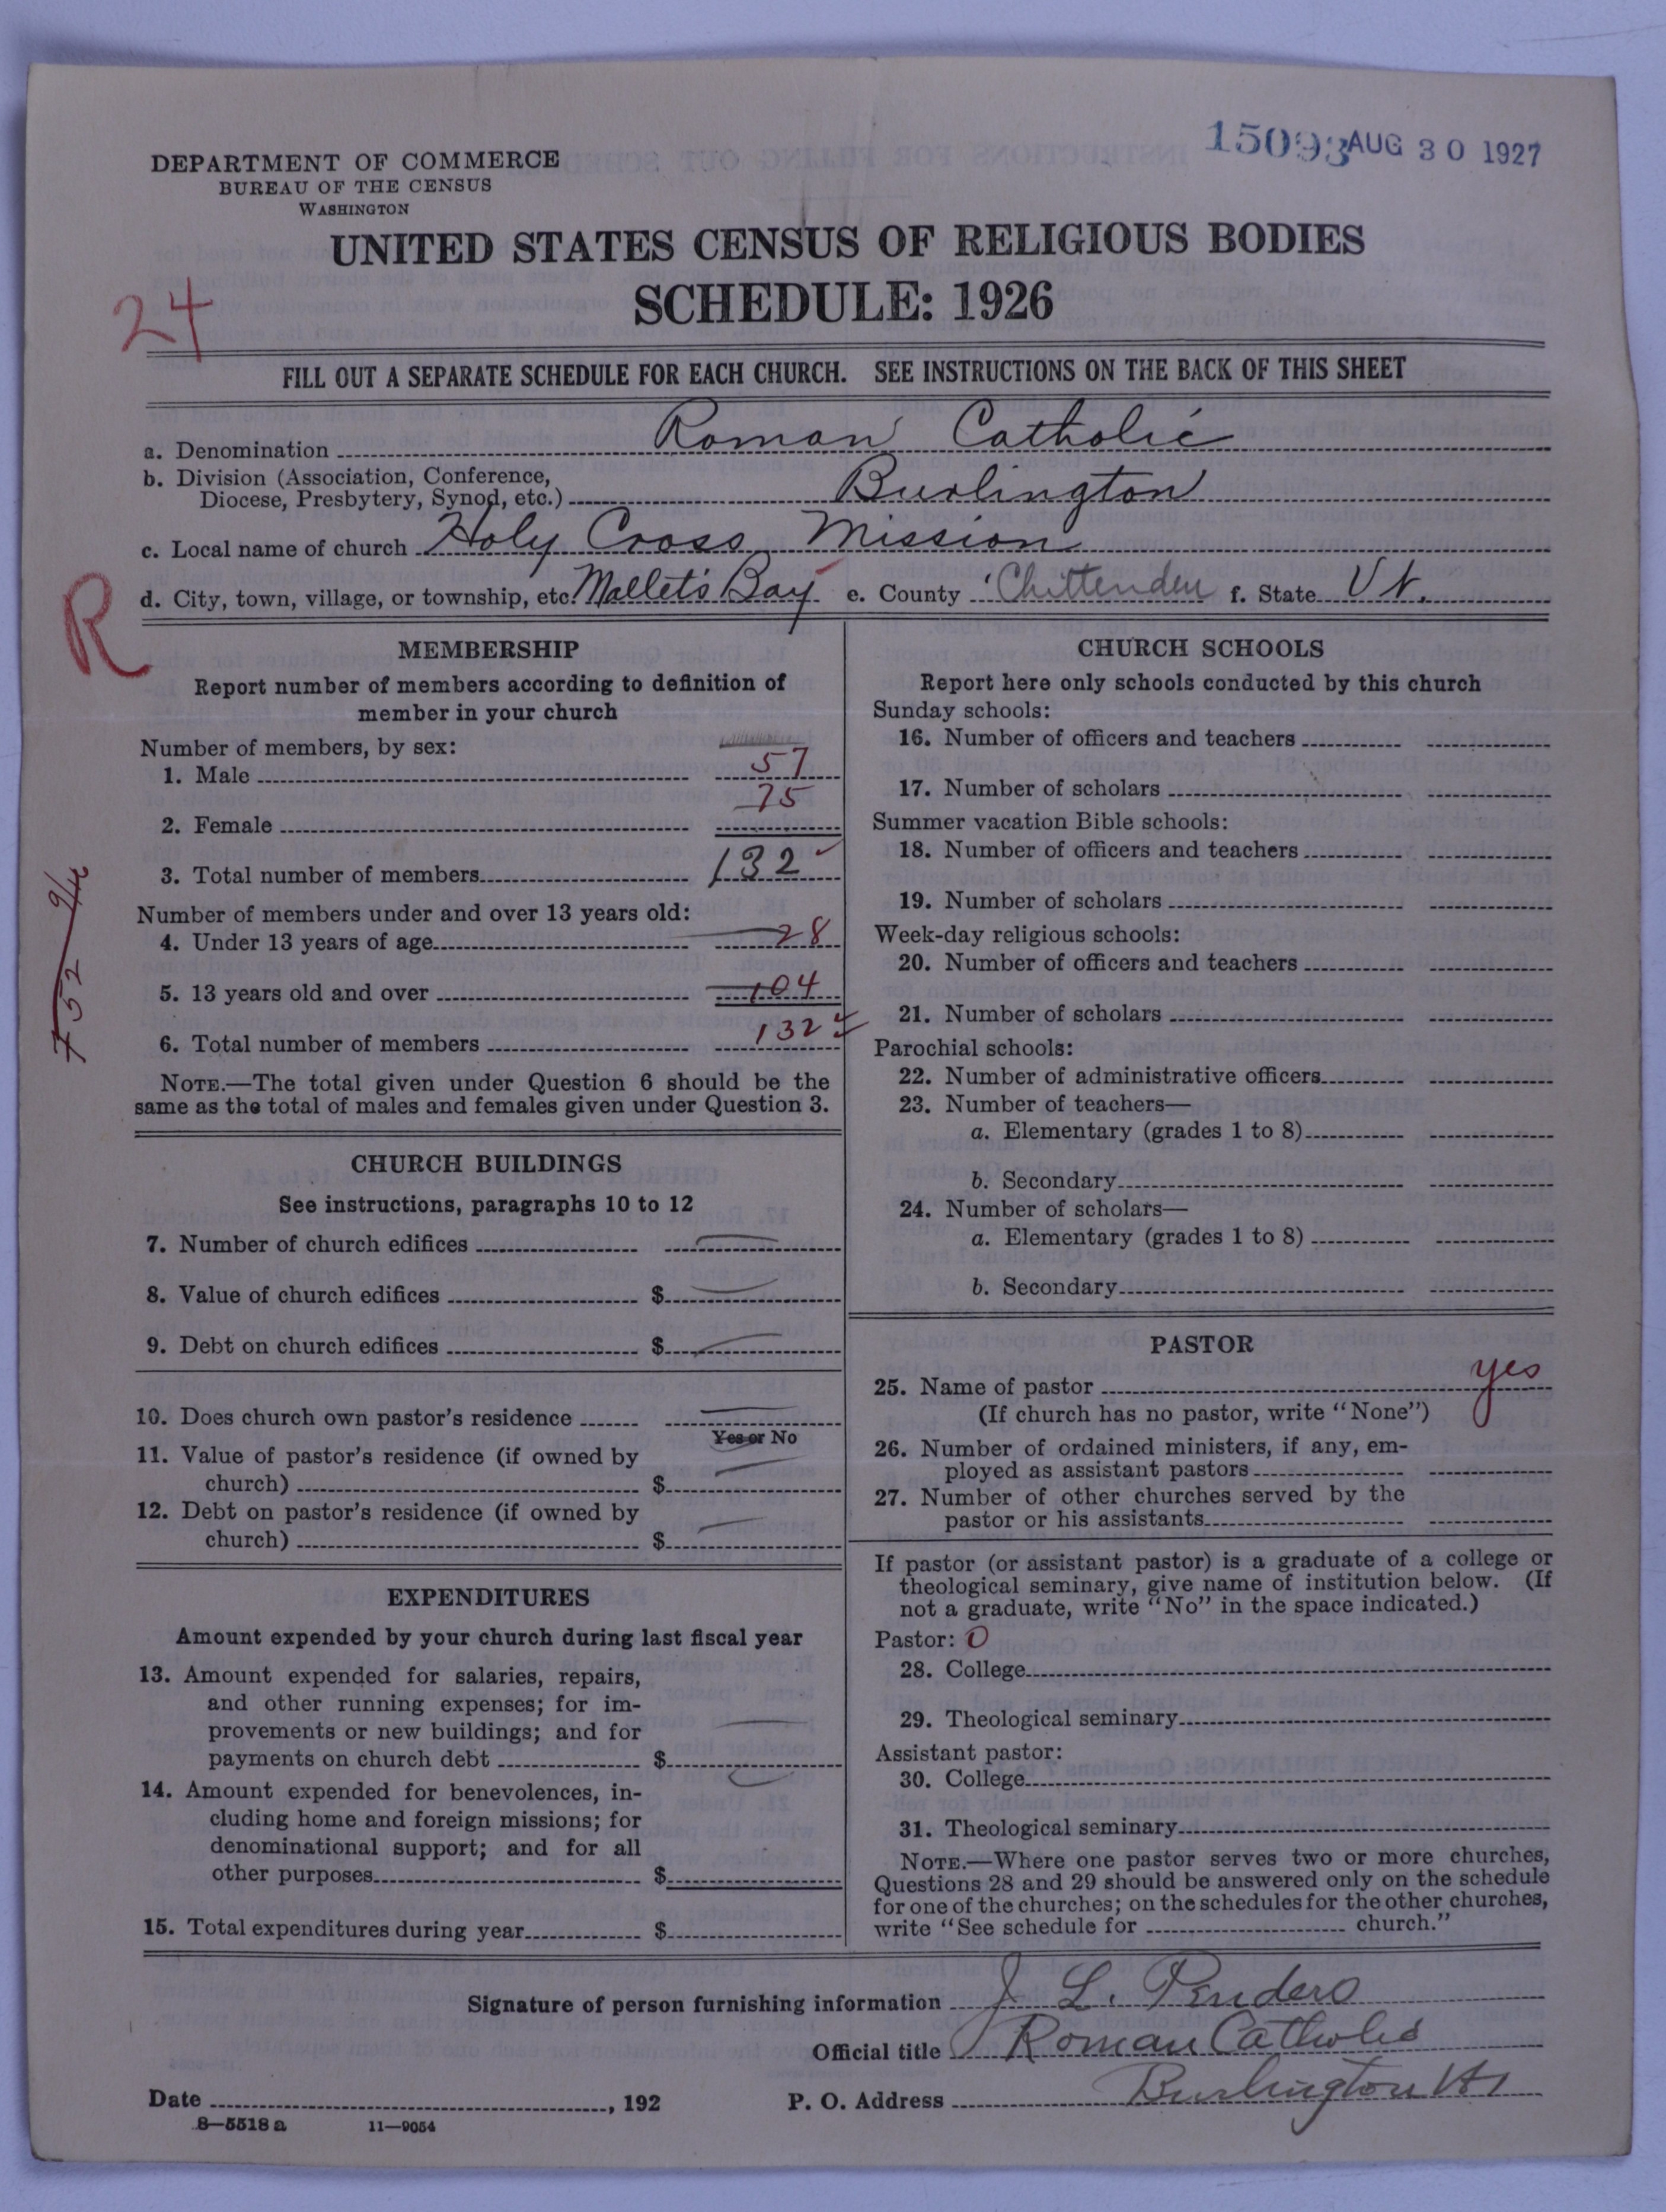 15093 AUG 30 1927
DEPARTMENT OF COMMERCE
BUREAU OF THE CENSUS
WASHINGTON
UNITED STATES CENSUS OF RELIGIOUS BODIES
SCHEDULE: 1926
24
FILL OUT A SEPARATE SCHEDULE FOR EACH CHURCH. SEE INSTRUCTIONS ON THE BACK OF THIS SHEET
a. Denomination Roman Catholic
b. Division (Association, Conference,
Diocese, Presbytery, Synod, etc.) Burlington
c. Local name of church Holy Cross Mission
d. City, town, village, or township, etc. Mallet's Bay e. County Chittenden f. State Vt.
R
MEMBERSHIP
Report number of members according to definition of
member in your church
Number of members, by sex:
1. Male 57
2. Female 75
3. Total number of members 132
Number of members under and over 13 years old:
4. Under 13 years of age 28
5. 13 years old and over 104
6. Total number of members 132
NOTE.—The total given under Question 6 should be the
same as the total of males and females given under Question 3.
752
CHURCH BUILDINGS
See instructions, paragraphs 10 to 12
7. Number of church edifices
8. Value of church edifices $
9. Debt on church edifices $
10. Does church own pastor's residence
Yes or No
11. Value of pastor's residence (if owned by
church) $
12. Debt on pastor's residence (if owned by
church) $
EXPENDITURES
Amount expended by your church during last fiscal year
13. Amount expended for salaries, repairs,
and other running expenses; for im-
provements or new buildings; and for
payments on church debt $
14. Amount expended for benevolences, in-
cluding home and foreign missions; for
denominational support; and for all
other purposes $
15. Total expenditures during year $
CHURCH SCHOOLS
Report here only schools conducted by this church
Sunday schools:
16. Number of officers and teachers
17. Number of scholars
Summer vacation Bible schools:
18. Number of officers and teachers
19. Number of scholars
Week-day religious schools:
20. Number of officers and teachers
21. Number of scholars
Parochial schools:
22. Number of administrative officers
23. Number of teachers—
a. Elementary (grades 1 to 8)
b. Secondary
24. Number of scholars—
a. Elementary (grades 1 to 8)
b. Secondary
PASTOR
25. Name of pastor yes
(If church has no pastor, write "None")
26. Number of ordained ministers, if any, em-
ployed as assistant pastors
27. Number of other churches served by the
pastor or his assistants
If pastor (or assistant pastor) is a graduate of a college or
theological seminary, give name of institution below. (If
not a graduate, write "No" in the space indicated.)
Pastor: 0
28. College
29. Theological seminary
Assistant pastor:
30. College
31. Theological seminary
NOTE.—Where one pastor serves two or more churches,
Questions 28 and 29 should be answered only on the schedule
for one of the churches; on the schedules for the other churches,
write "See schedule for church."
Signature of person furnishing information J. L. Penders
Official title Roman Catholic
Date , 192 P. O. Address Burlington Vt
8—5518 a 11—9054